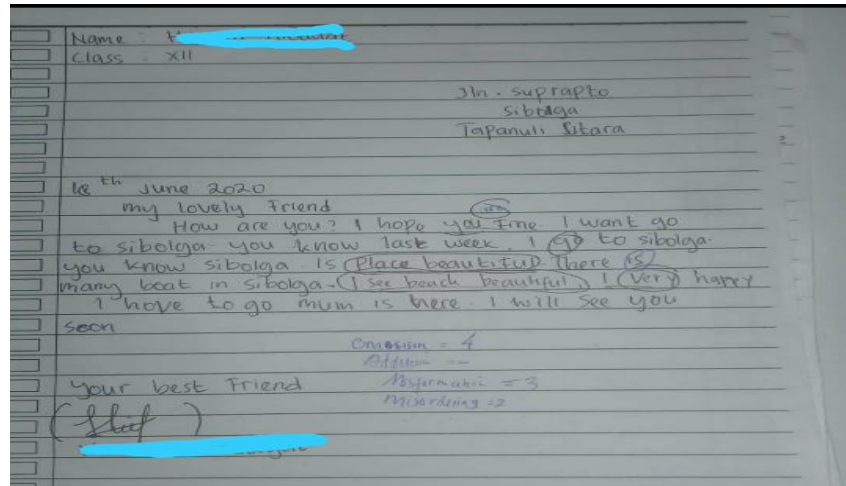 Name :
Class : XII
Jln. suprapto
sibolga
Tapanuli Utara
18 th June 2020
my lovely Friend
How are you? I hope you fine. I want go
to sibolga. you know last week. I go to sibolga.
you know sibolga. Is Place beautiful. There is
many boat in sibolga. I see beach beautiful, I very happy
I have to go mum is here. I will see you
soon
Omission = 4
Addition = -
Misformation = 3
Misordering = 2
your best Friend